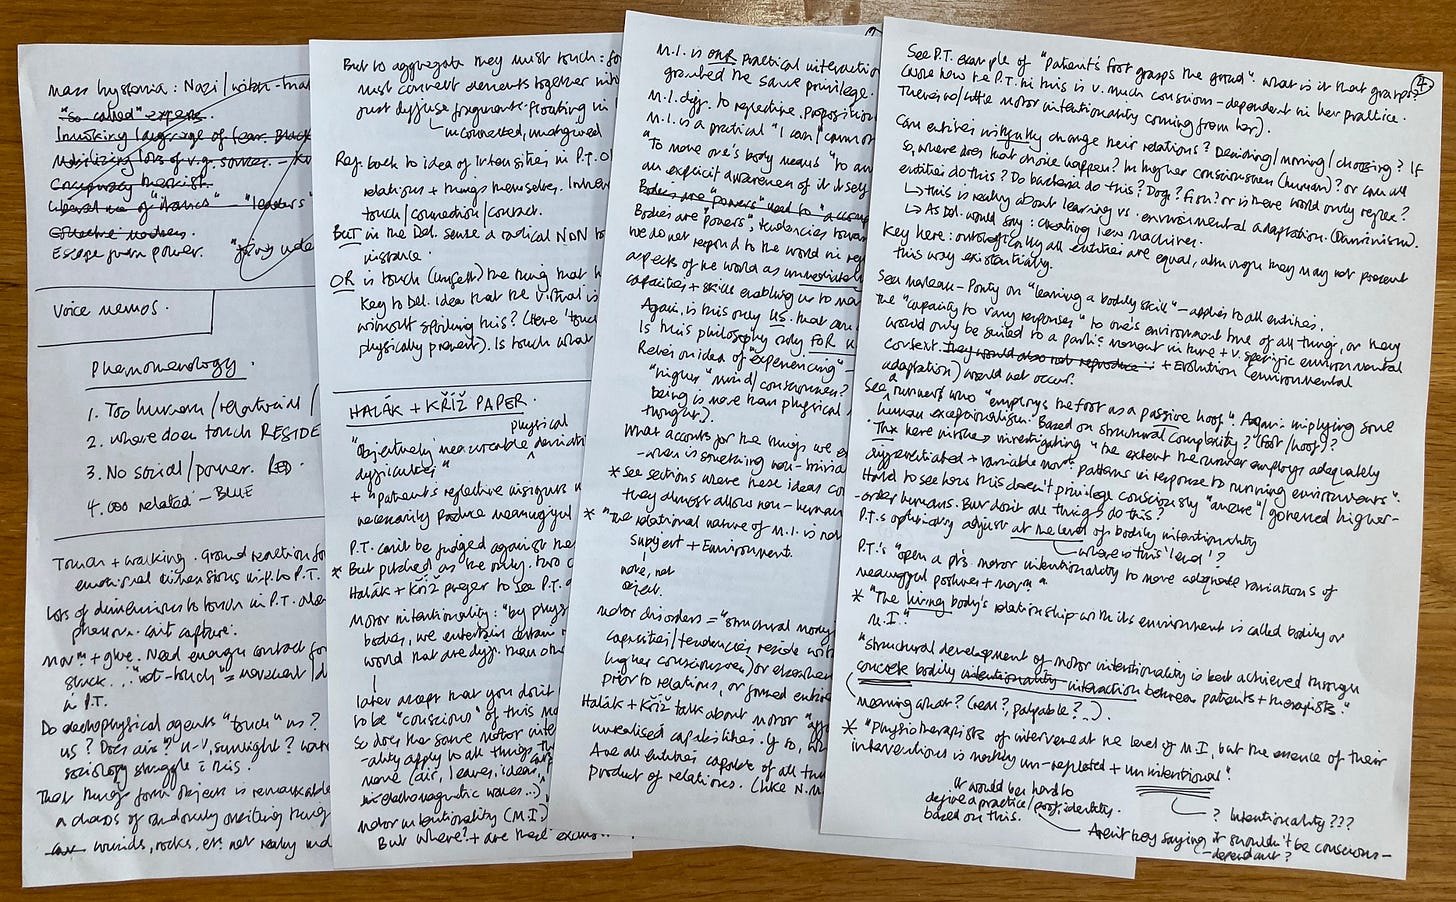 mass hysteria: Nazi/witch-trial
"so called" experts.
Invoking language of fear. Black
Conspiracy theorist.
Escape from power.
Voice memos.
Phenomenology.
1. Too human/relational/
2. where does touch RESIDE
3. No social/power. RED.
4. OOO related – BLUE
Touch + walking. Ground reaction for
emotional dimensions imp. to P.T.
Lots of dimensions to touch in P.T.
phenom. can't capture.
Movᵗ + glue. Need enough contact for
stuck... "not-touch" = movement/d
in P.T.
Do electrophysical agents "touch" us?
us? Does air? U-V, sunlight?
sociology struggle c̄ this.
That things form objects is remarkable
a chaos of randomly orbiting things
winds, rocks, etc. not really
But to aggregate they must touch: fo
must connect elements together into
just diffuse fragments floating in
unconnected, unshaped
Ref. back to idea of intensities in P.T. O
relations + things themselves.
touch/connection/contact.
BUT in the Del. sense a radical NON to
instance.
OR is touch (itself) the thing that
Key to Del. idea that the virtual is
without spoiling this? (Here 'touc
physically present). Is touch what
HALÁK + KŘÍŽ PAPER.
physical
"Objectively measurable deviati
difficulties"
+ "patient's reflective insights
necessarily produce meaningful
P.T. can't be judged against the
* But pitched as the only two
Halák + Kříž prefer to see P.T.
Motor intentionality: "by phys
bodies, we entertain certain
world that are diff. than othe
later accept that you don't
to be "conscious" of this mo
So does the same motor inte
-ality apply to all things th
move (air, leaves, ideas,
electromagnetic waves...)
Motor intentionality (M.I.)
But where? + are these
M.I. is OUR practical interaction
granted the same privilege.
M.I. diff. to reflective, proposition
M.I. is a practical "I can" cannot
"To move one's body means "to
an explicit awareness of it itself
Bodies are "powers"
Bodies are "powers", tendencies towar
We do not respond to the world in
aspects of the world as immediate
capacities + skills enabling us to
Again, is this only US. that are
Is this philosophy only FOR
Relies on idea of "experiencing" –
"higher" mind/consciousness?
being is more than physical
thought).
What accounts for the things we
– when is something non-trivia
* See sections where these ideas co
they almost allow non-human
* "The relational nature of M.I. is not
Subject + Environment.
note, not
object.
Motor disorders = "structural mody
capacities/tendencies reside with
higher consciousness) or elsewher
prior to relations, or formed
Halák + Kříž talk about motor "
unrealised capabilities. If so,
Are all entities capable of all
product of relations. (like N.M.
4
See P.T. example of "patient's foot grasps the ground". What is it that grasps?
Cause how the P.T. in this is v. much conscious-dependent in her practice.
There's no/little motor intentionality coming from her).
Can entities willfully change their relations? Deciding/moving/choosing? If
so, where does that choice happen? In higher consciousness (human)? or can all
entities do this? Do bacteria do this? Dogs? Fion? or is there world only reflex?
↳ this is really about learning vs. environmental adaptation. (Darwinism).
↳ As Del. would say: creating new machines.
Key here: ontologically all entities are equal, although they may not present
this way existentially.
See Merleau-Ponty on "learning a bodily skill" – applies to all entities.
The "capacity to vary responses" to one's environment true of all things, or they
would only be suited to a partic. moment in time + v. specific environmental
context. they would also not reproduce + Evolution (environmental
adaptation) would not occur.
See runners who "employs the foot as a passive hoof". Again implying some
human exceptionalism. Based on structural complexity? (Foot/hoof)?
Thx here involves investigating "the extent the runner employs adequately
differentiated + variable movᵗ patterns in response to running environments".
Hard to see how this doesn't privilege consciously "aware"/governed higher-
-order humans. But don't all things do this?
P.T.s optimally adjust at the level of bodily intentionality
where is this 'level'?
P.T.'s "open a pt's. motor intentionality to more adequate variations of
meaningful posture + movᵗ"
* "The living body's relationship with its environment is called bodily or
M.I."
"Structural development of motor intentionality is best achieved through
concrete bodily intentionality interaction between patients + therapists."
(meaning what? (real?, palpable?..).
* "Physiotherapists often intervene at the level of M.I., but the essence of their
interventions is mostly un-reflected + unintentional".
? Intentionality???
It would be v. hard to
define a practice/prof. identity.
based on this.
Aren't they saying it shouldn't be conscious-
-dependant?